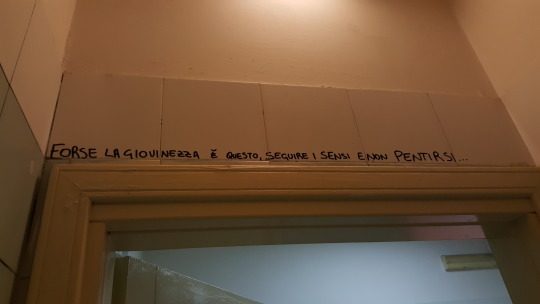 FORSE LA GIOVINEZZA È QUESTO, SEGUIRE I SENSI E NON PENTIRSI...